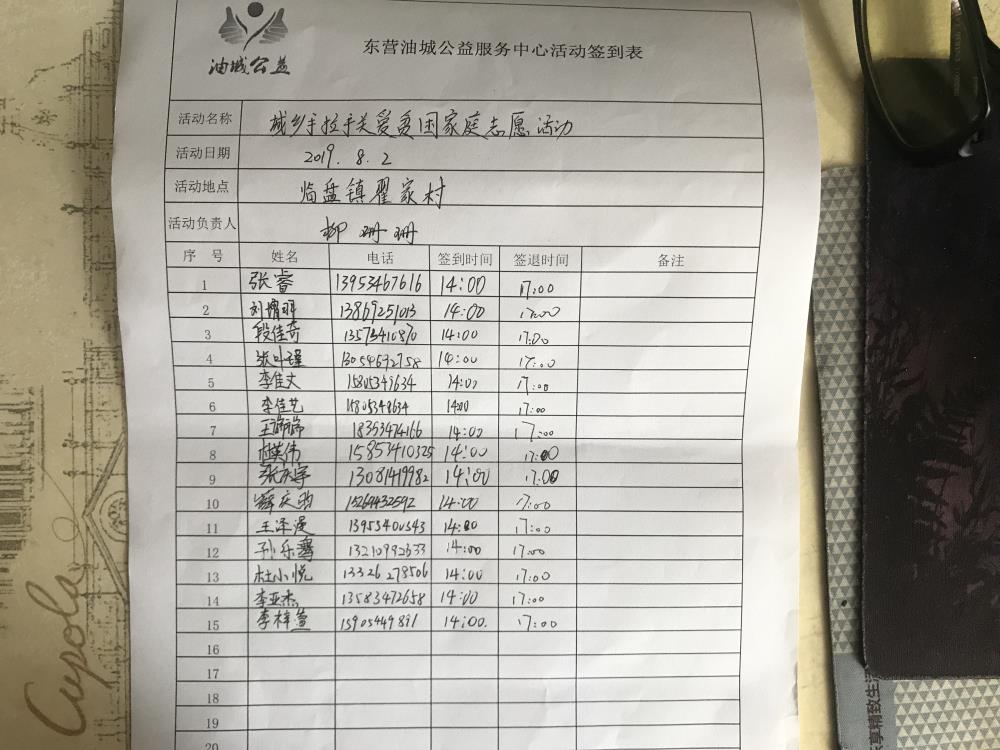 油城公益
东营油城公益服务中心活动签到表
活动名称 城乡手拉手关爱贫困家庭志愿活动
活动日期 2019.8.2
活动地点 临盘镇翟家村
活动负责人 柳珊珊
序号 姓名 电话 签到时间 签退时间 备注
1 张睿 13953467616 14:00 17:00
2 13869251013 14:00 17:00
3 段佳奇 13573410870 14:00 17:00
4 13054692758 14:00 17:00
5 李佳文 15805348634 14:00 17:00
6 李佳艺 15805348634 14:00 17:00
7 王娣娣 18353474166 14:00 17:00
8 15853410325 14:00 17:00
9 13081419982 14:00 17:00
10 薛庆 13269432592 14:00 17:00
11 王泽漫 13955400343 14:00 17:00
12 孙乐 13210992633 14:00 17:00
13 杜小悦 13326278506 14:00 17:00
14 李亚杰 13583472658 14:00 17:00
15 李梓萱 15905449891 14:00 17:00
16
17
18
19
20
Cupola
享精致生活